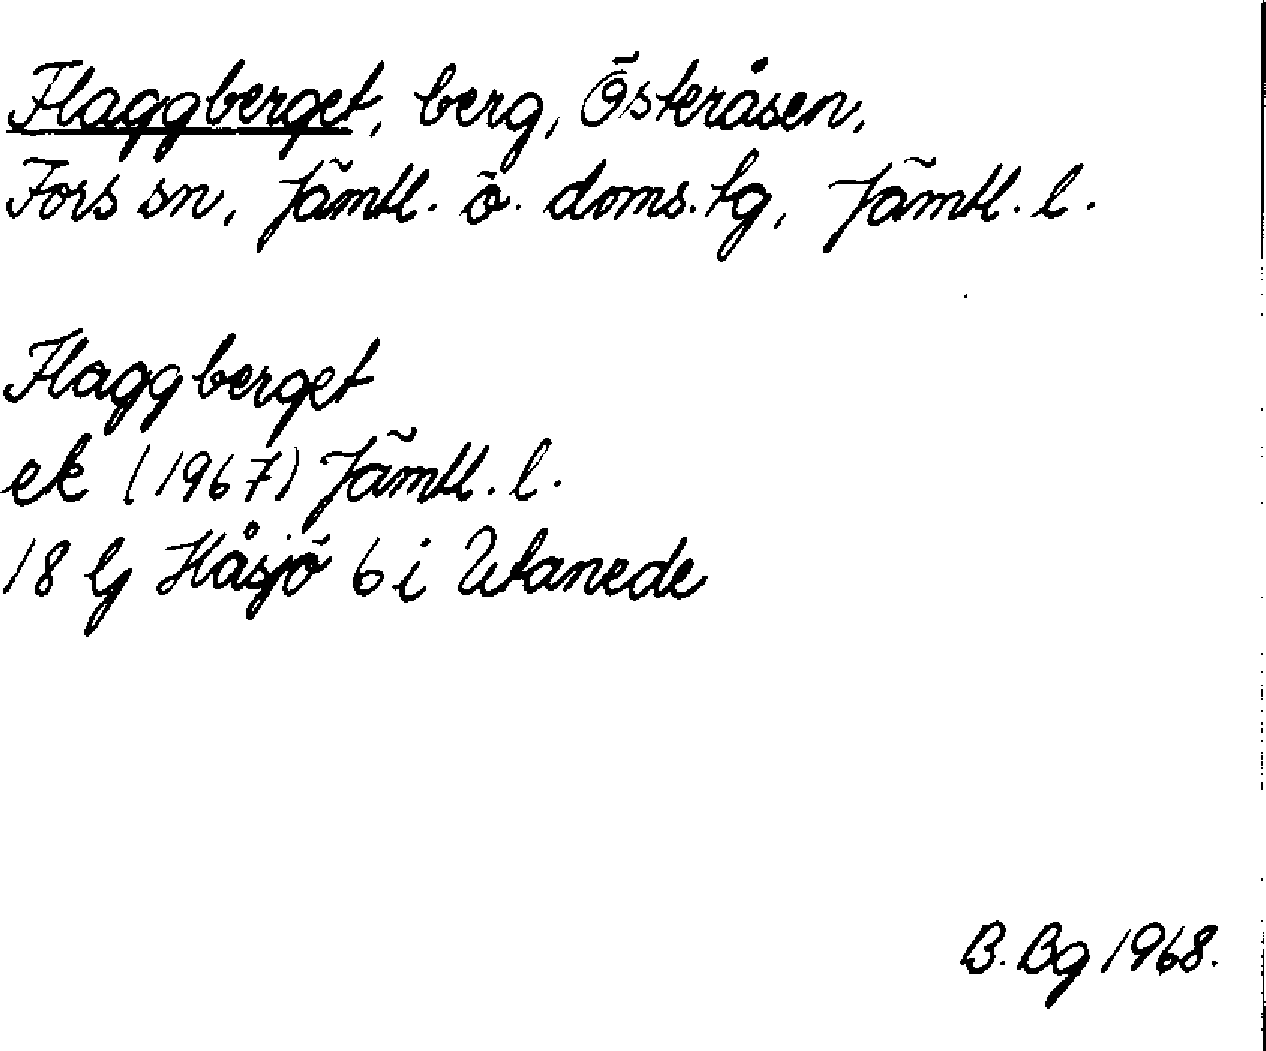 Flaggberget, berg, Österåsen,
Fors sn, Jämtl. ö. doms.tg, Jämtl. l.
Flaggberget
ek (1967) Jämtl. l.
18 G Håsjö 6 i Utanede
B. Bg 1968.